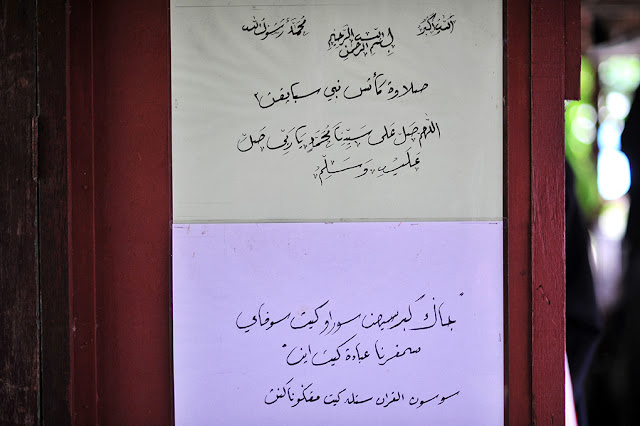 الله أكبر
محمد رسول الله
بسم الله الرحمن الرحيم
صلاوة كأتس نبي سباڽقڽ٢
اللهم صَلِّ عَلى سَيِّدِنَا مُحَمَّدٍ يَا رَبِّي صَلِّ
عَلَيْهِ وَسَلِّمْ
"جاݢ كبرسيهن سوراو كيت سوفاي
سمفرنا عبادة كيت اين"
سوسون القران ستله كيت مڠݢوناكنڽ